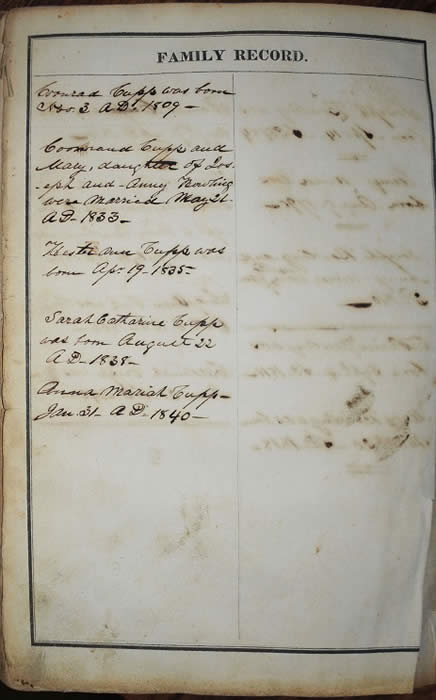 FAMILY RECORD.
Conrad Cupp was born
Nov 3 A.D. 1809 –
Coonraud Cupp and
Mary, daughter of Jos-
-eph and Anny Bowling
were Married May 21
A.D. 1833 –
Hester ann Cupp was
born Apr. 19 – 1835 –
Sarah Catharine Cupp
was born August 22
A.D. – 1838 –
Anna Mariah Cupp –
Jan 31 – A.D. 1840 –